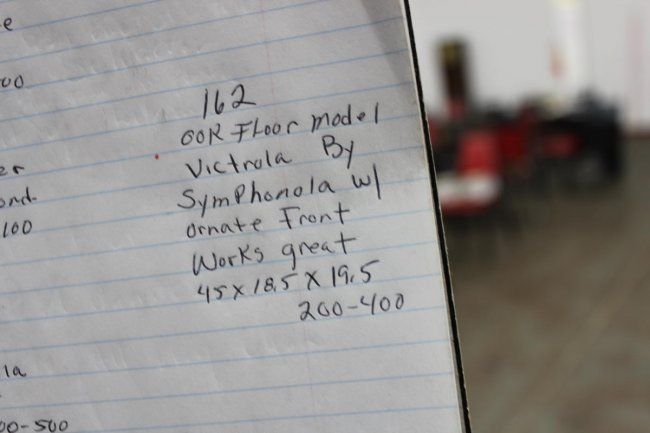 e
00
er
ond
100
162
OOR Floor model
Victrola By
Symphonola w/
Ornate Front
Works great
45 x 18.5 x 19.5
200-400
la
00-500